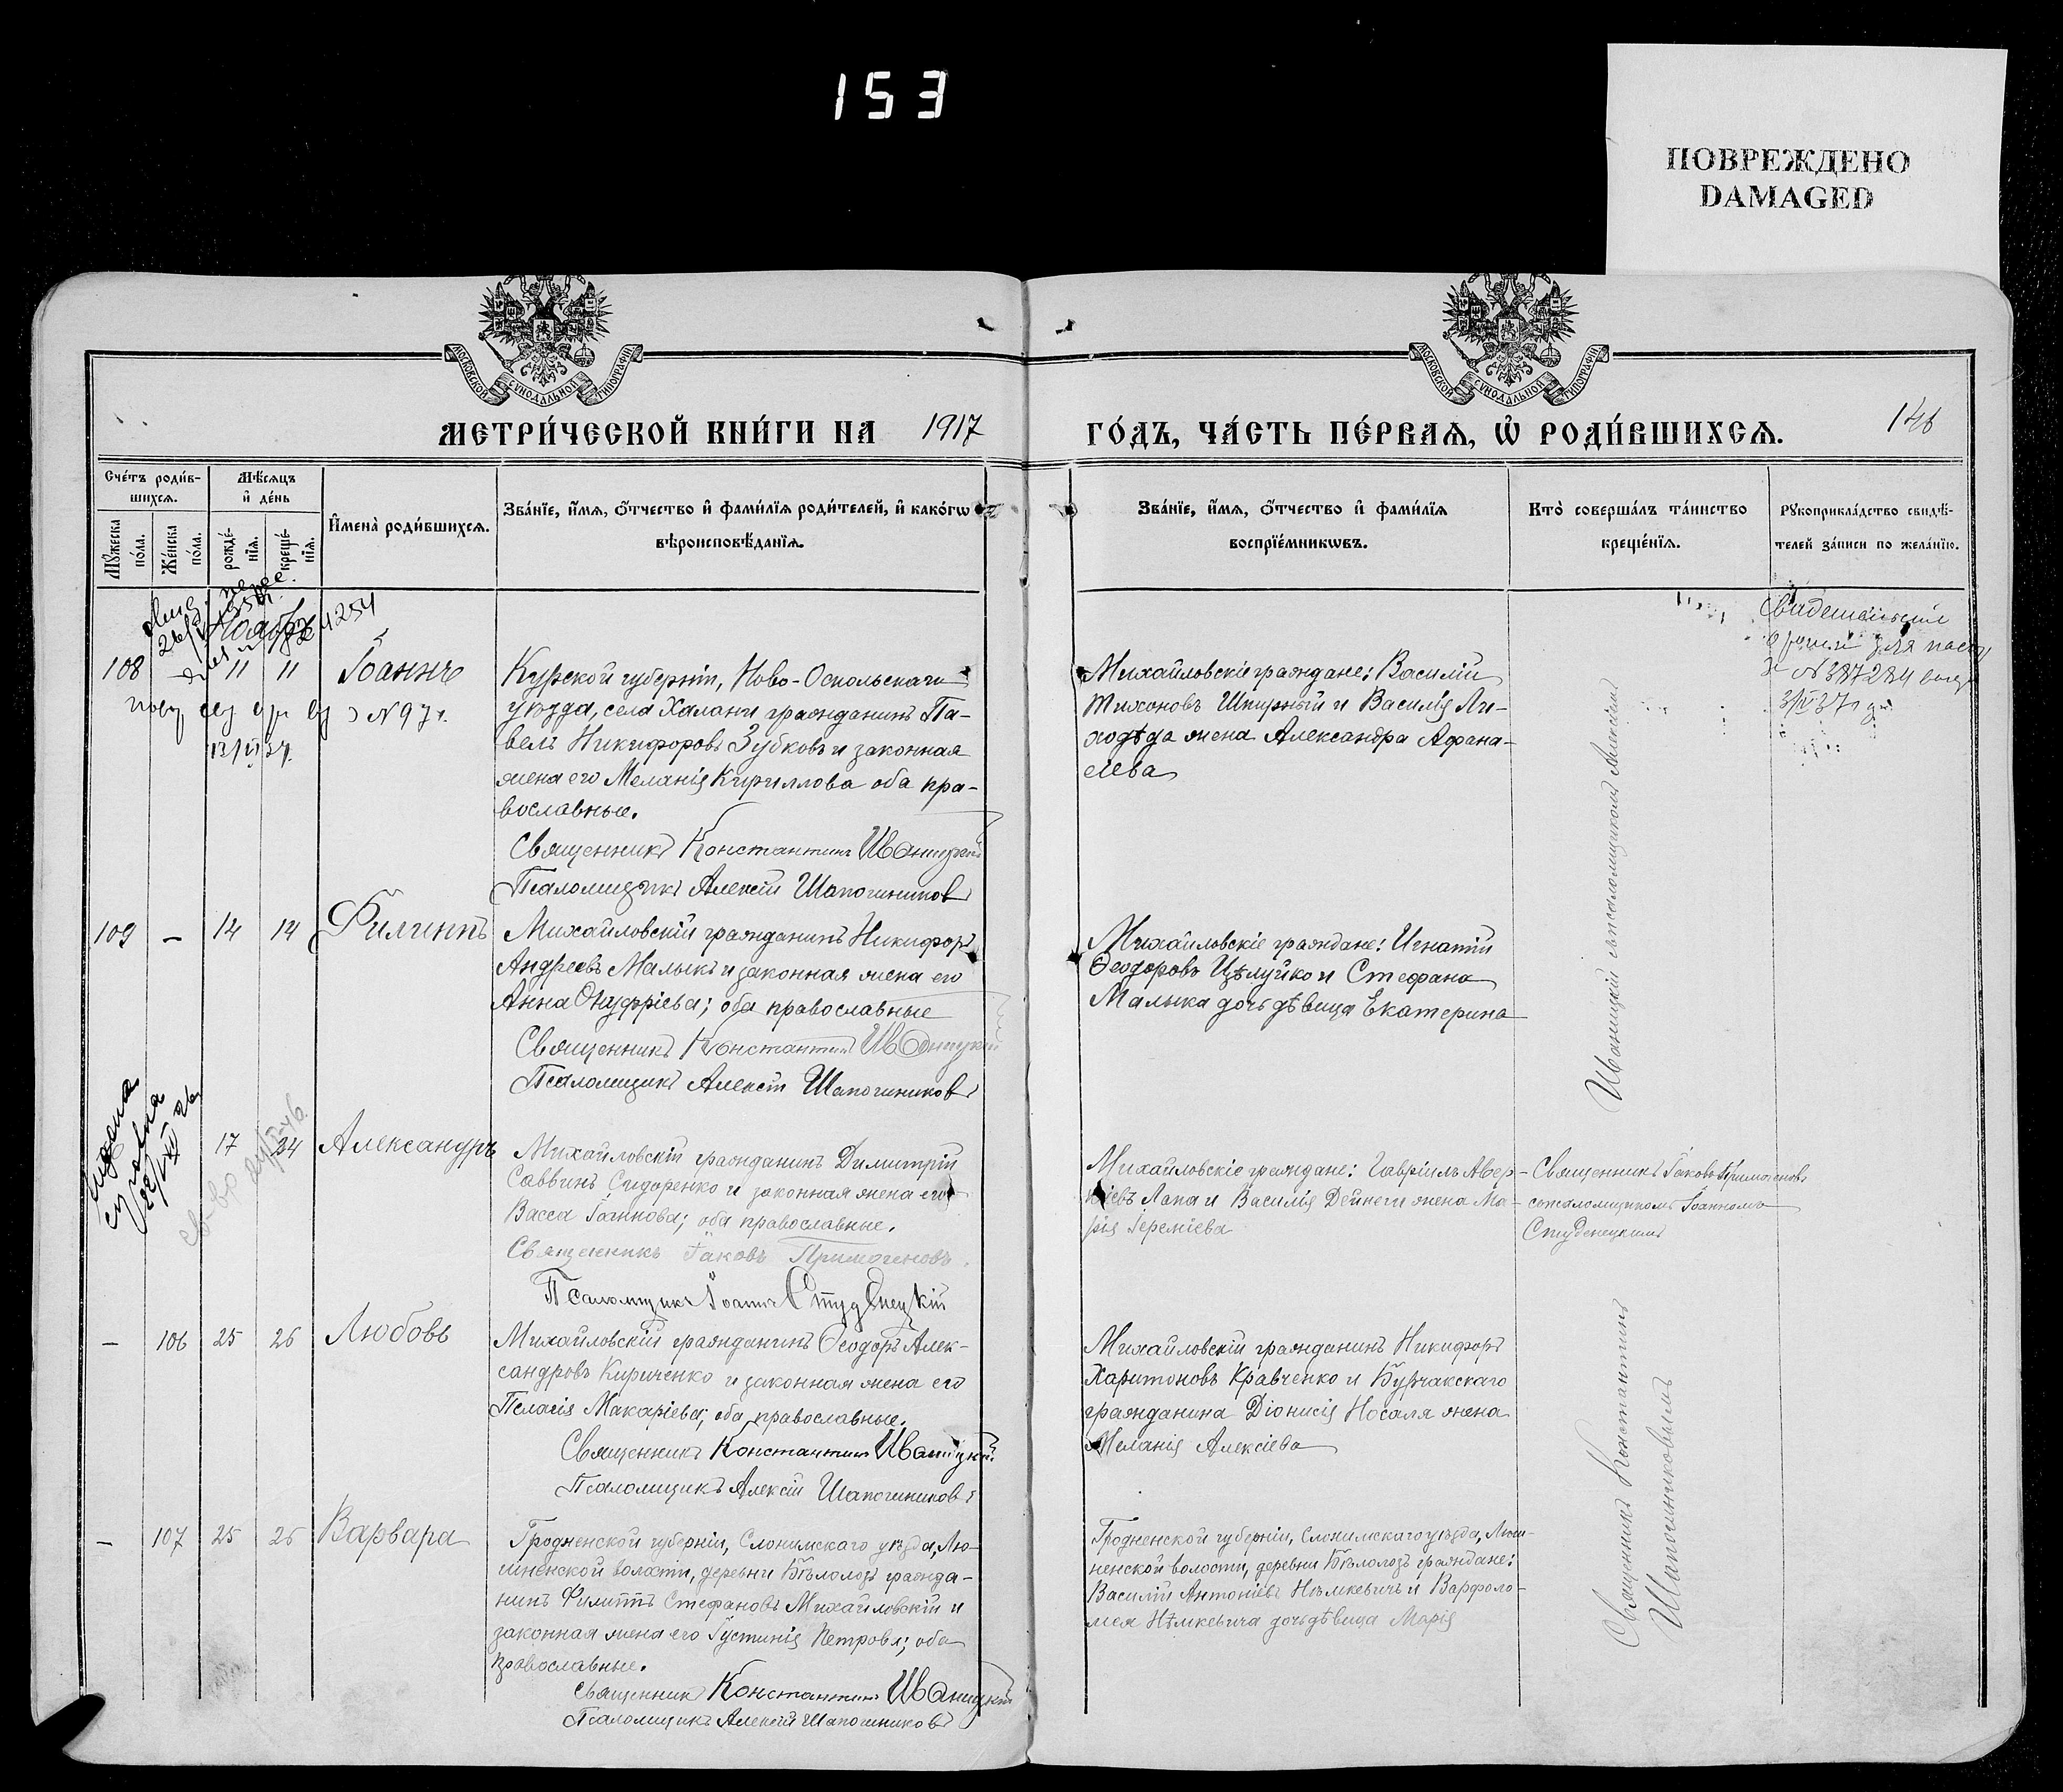 153
ПОВРЕЖДЕНО
DAMAGED
МОСКОВСКОЙ СѴНОДАЛЬНОЙ ТИПОГРАФІИ
МОСКОВСКОЙ СѴНОДАЛЬНОЙ ТИПОГРАФІИ
МЕТРИ́ЧЕСКОЙ КНИ́ГИ НА 1917
ГО́ДЪ, ЧА́СТЬ ПЕ́РВАѦ, Ѡ҆ РОДИ́ВШИХСѦ.
146
Сче́тъ роди́в-
шихсѧ.
Мѹжеска по́ла.
Же́нска по́ла.
Мѣ́сѧцъ
и҆ де́нь
рожде́-
нїѧ.
креще́-
нїѧ.
И҆мена̀ роди́вшихсѧ.
Зва́нїе, и҆́мѧ, ѻ҆́тчество и҆ фами́лїѧ роди́телей, и҆ како́гѡ
вѣроисповѣ́данїѧ.
Зва́нїе, и҆́мѧ, ѻ҆́тчество и҆ фами́лїѧ
воспрїе́мникѡвъ.
Кто̀ соверша́лъ та́инство
креще́нїѧ.
Рѹкоприкла́дство свидѣ́-
телей за́писи по жела́нїю.
4254
108 11 11 Іоаннъ
№ 97
Курской губерніи, Ново-Оскольскаго
уѣзда, села Халани гражданинъ Па-
велъ Никифоровъ Зубковъ и законная
жена его Меланія Кириллова оба пра-
вославные.
Священникъ Константинъ Иваницкій
Псаломщикъ Алексій Шапошниковъ
Михайловскіе граждане: Василій
Тихоновъ Шпирный и Василія Ли-
ходѣда жена Александра Афана-
сіева
Свидетельство
№ 387284
109 – 14 14 Филиппъ
Михайловскій гражданинъ Никифоръ
Андреевъ Малыкъ и законная жена его
Анна Онуфріева; оба православные
Священникъ Константинъ Иваницкій
Псаломщикъ Алексій Шапошниковъ
Михайловскіе граждане: Игнатій
Ѳеодоровъ Цѣлуйко и Стефана
Малыка дочь дѣвица Екатерина
Иваницкій съ псаломщикомъ Алексіемъ
17 24 Александръ
Михайловскій гражданинъ Димитрій
Саввинъ Сидоренко и законная жена его
Васса Іоаннова; оба православные.
Священникъ Іаковъ Примогеновъ.
Псаломщикъ Іоаннъ Студенецкій
Михайловскіе граждане: Гавріилъ Авер-
кіевъ Лапа и Василія Дейнеги жена Ма-
рія Іереміева
Священникъ Іаковъ Примогеновъ
съ псаломщикомъ Іоанномъ
Студенецкимъ
– 106 25 26 Любовь
Михайловскій гражданинъ Ѳеодоръ Алек-
сандровъ Кириченко и законная жена его
Пелагія Макаріева; оба православные.
Священникъ Константинъ Иваницкій
Псаломщикъ Алексій Шапошниковъ
Михайловскій гражданинъ Никифоръ
Харитоновъ Кравченко и Бурчакскаго
гражданина Діонисія Носаля жена
Меланія Алексіева
– 107 25 26 Варвара
Гродненской губерніи, Слонимскаго уѣзда, Лю-
шненской волости, деревни Бѣлолозъ гражда-
нинъ Филиппъ Стефановъ Михайловскій и
законная жена его Іустинія Петрова; оба
православные.
Священникъ Константинъ Иваницкій
Псаломщикъ Алексій Шапошниковъ
Гродненской губерніи, Слонимскаго уѣзда, Люш-
ненской волости, деревни Бѣлолозъ граждане:
Василій Антоніевъ Нѣмкевичъ и Варфоло-
мея Нѣмкевича дочь дѣвица Марія
Священникъ Константинъ
Шапошниковымъ